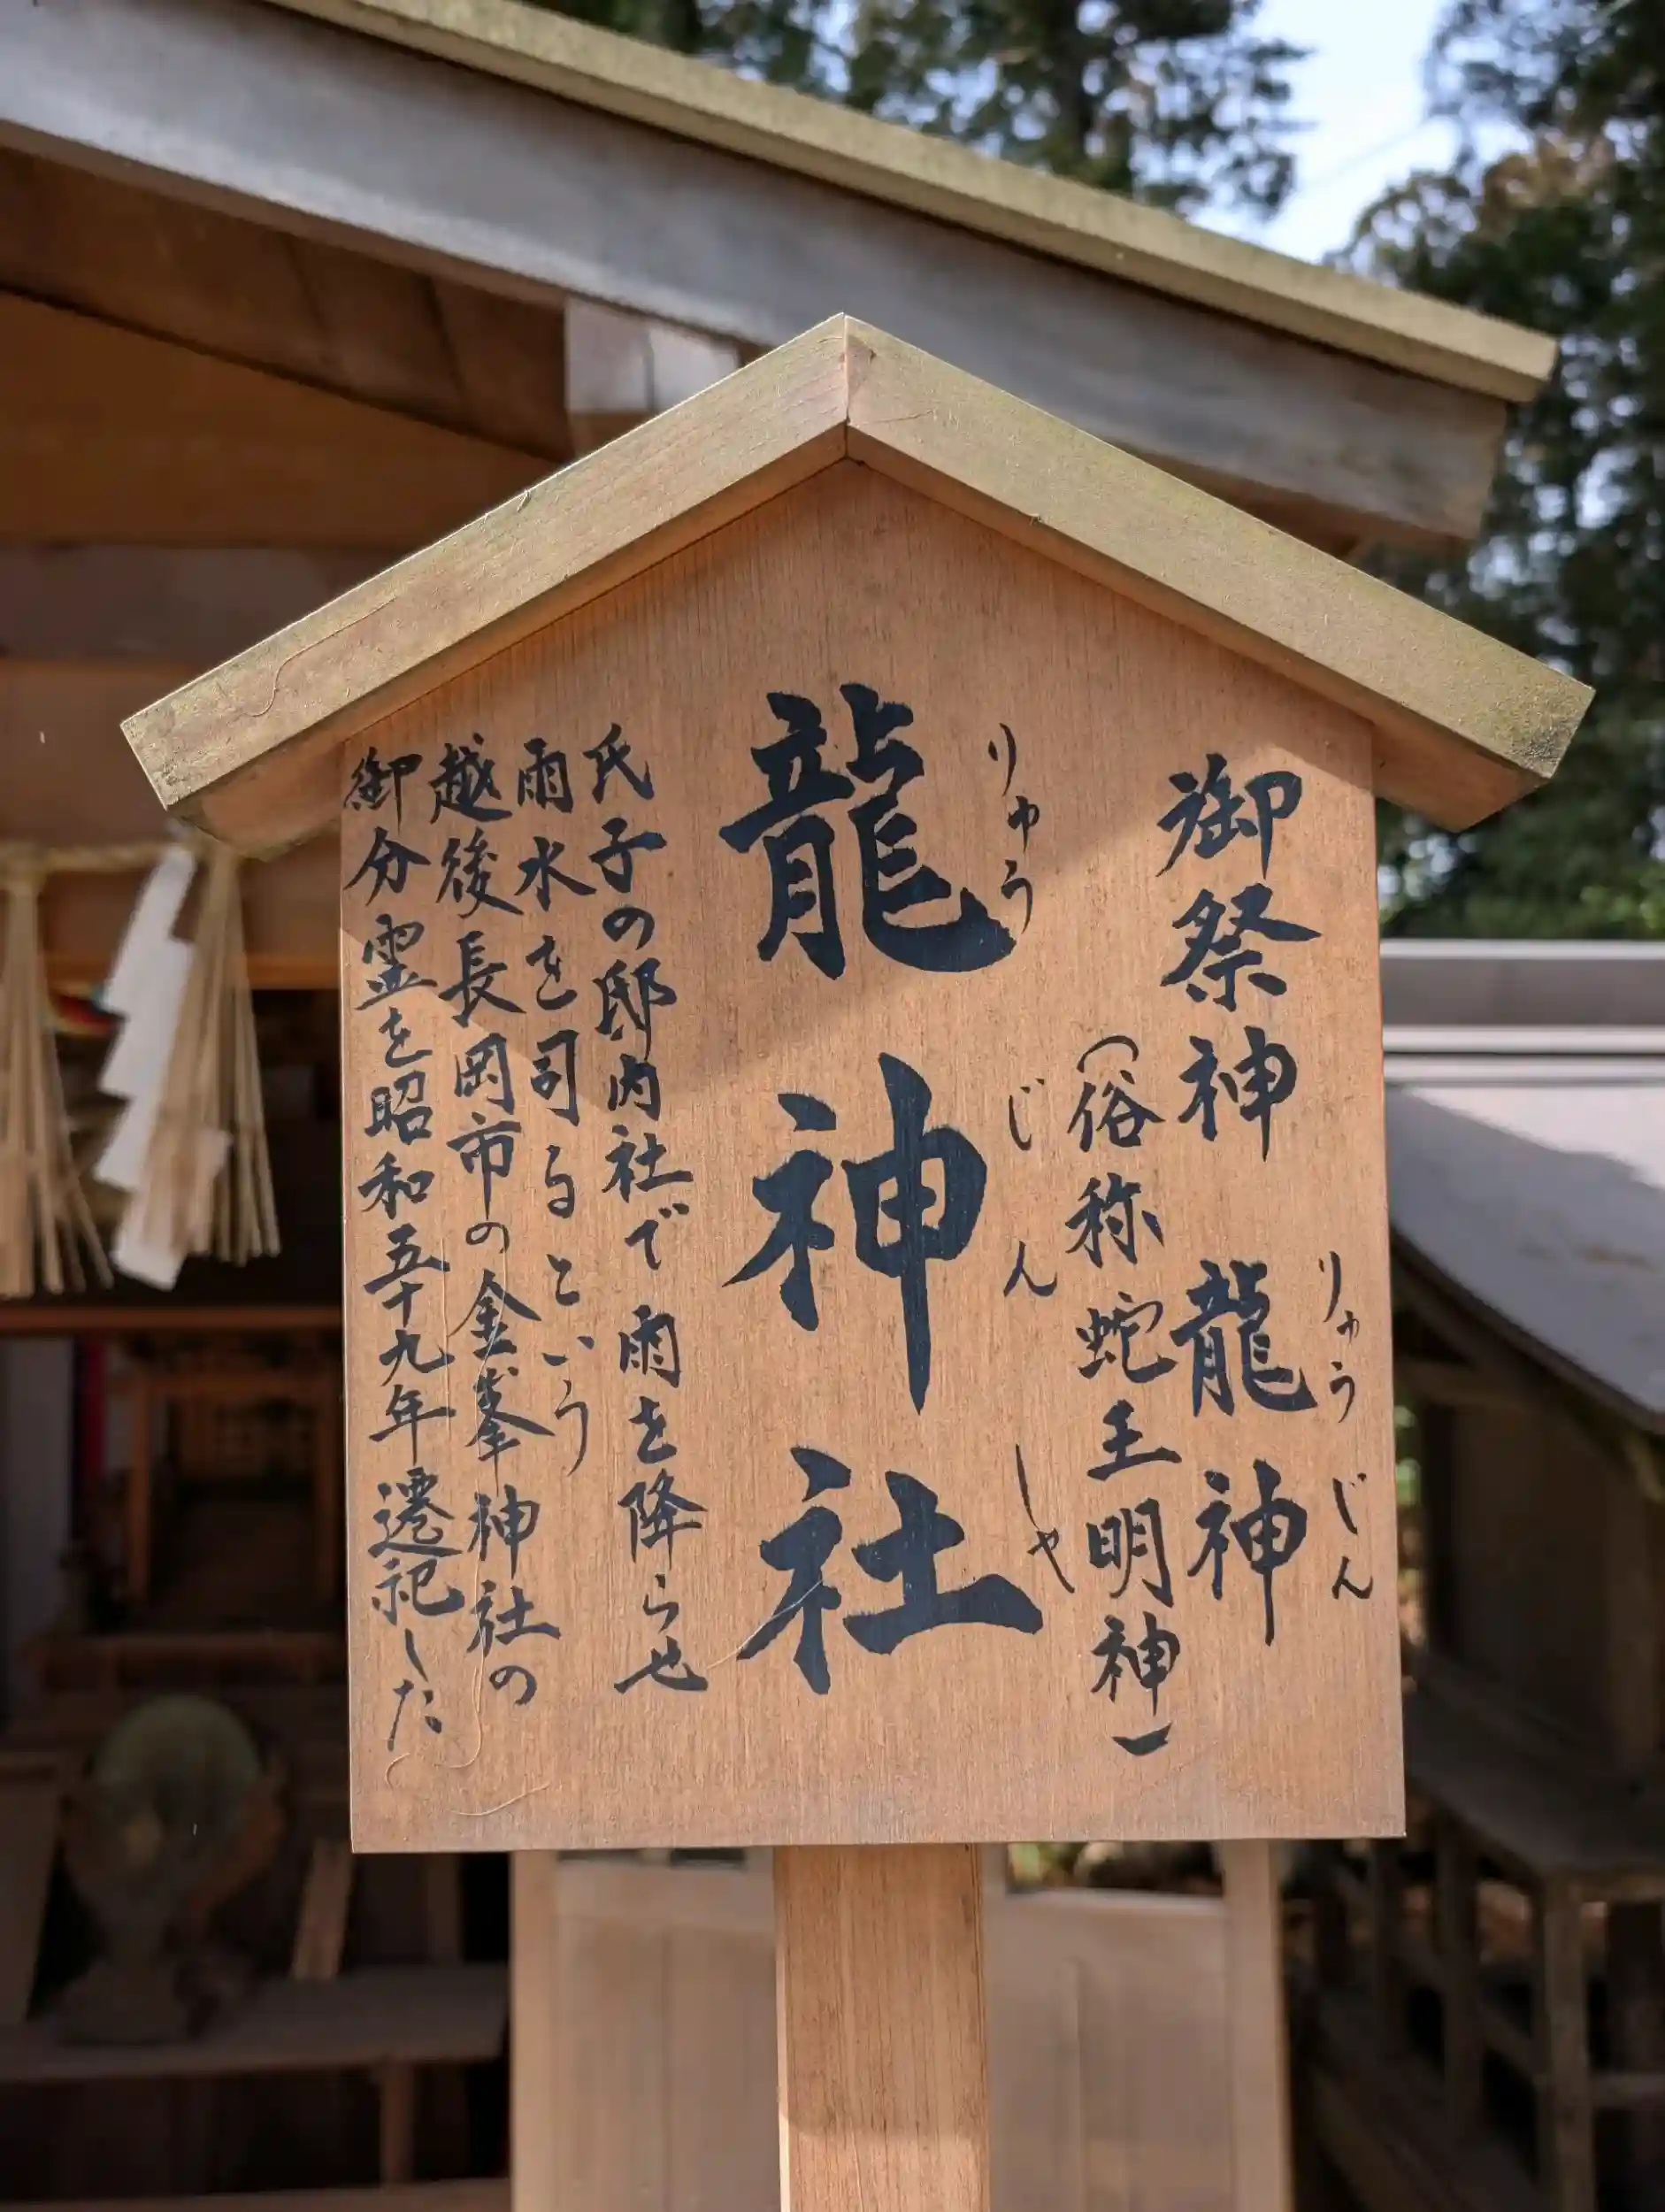 御祭神 龍神
りゅうじん
(俗称 蛇王明神)
龍神社
りゅうじんしゃ
氏子の邸内社で雨を降らせ
雨水を司るという
越後長岡市の金峯神社の
御分霊を昭和五十九年遷祀した